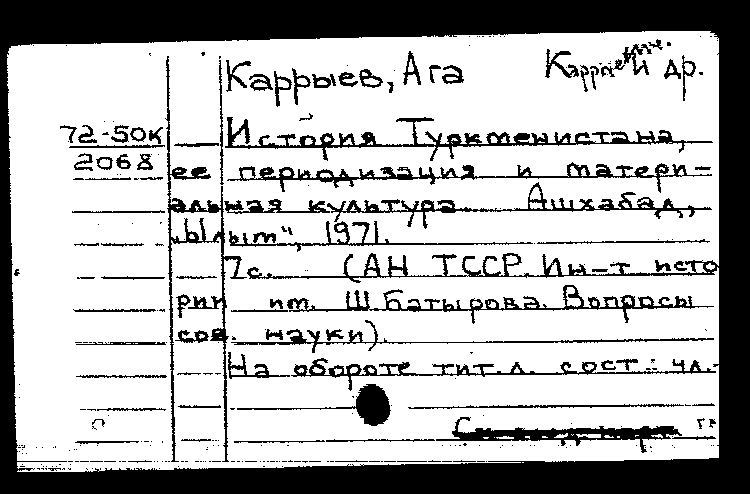 Каррыев, Ага
и др.
72-50к
2068
История Туркменистана,
ее периодизация и матери-
альная культура. Ашхабад,
„Ылым“, 1971.
7с. (АН ТССР. Ин-т исто
рии им. Ш.Батырова. Вопросы
сов. науки).
На обороте тит.л. сост.: чл.-